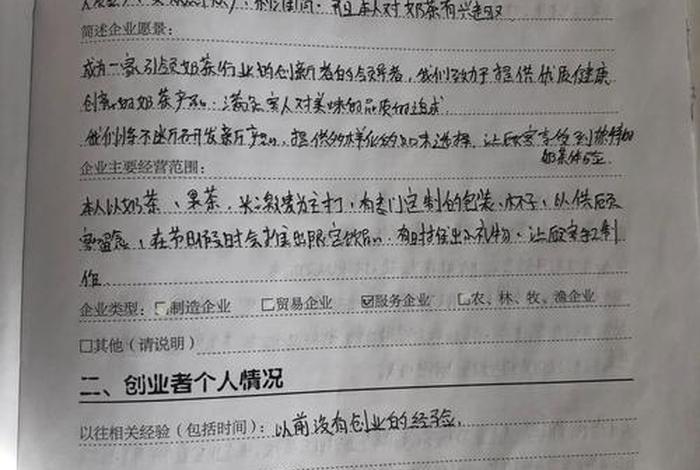 且本人对奶茶有兴趣
简述企业愿景：
成为一家引领奶茶行业的创新者的领导者，我们致力于提供优质健康
创新的奶茶产品，满足客人对美味的品质的追求
我们将不断研发新产品，提供多样化的口味选择，让顾客享受到独特的
奶茶体验.
企业主要经营范围：
本人以奶茶、果茶、为主打，有专门定制的包装、杯子，以供顾
客留念，在节日假日时会推出限定饮品，有时推出小礼物，让顾客手工制
作.
企业类型：□制造企业 □贸易企业 ☑服务企业 □农、林、牧、渔企业
□其他（请说明）
二、创业者个人情况
以往相关经验（包括时间）：以前没有创业的经验.